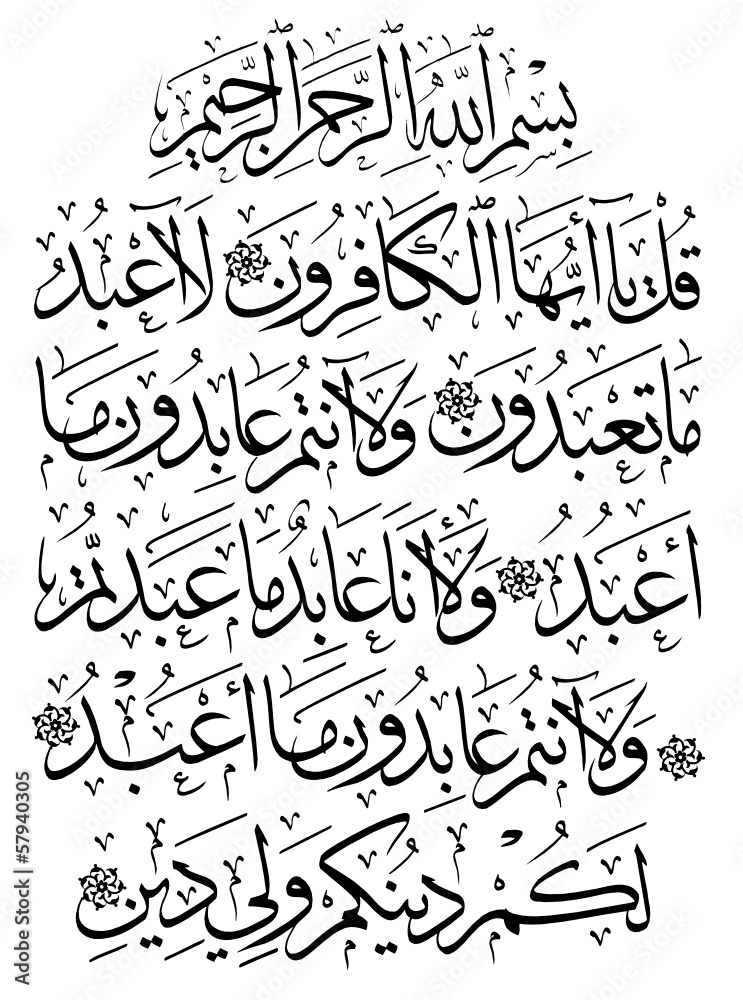 بِسْمِ اللَّهِ الرَّحْمَٰنِ الرَّحِيمِ
قُلْ يَا أَيُّهَا الْكَافِرُونَ لَا أَعْبُدُ
مَا تَعْبُدُونَ وَلَا أَنْتُمْ عَابِدُونَ مَا
أَعْبُدُ وَلَا أَنَا عَابِدٌ مَا عَبَدْتُمْ
وَلَا أَنْتُمْ عَابِدُونَ مَا أَعْبُدُ
لَكُمْ دِينُكُمْ وَلِيَ دِينِ
Adobe Stock | #57940305